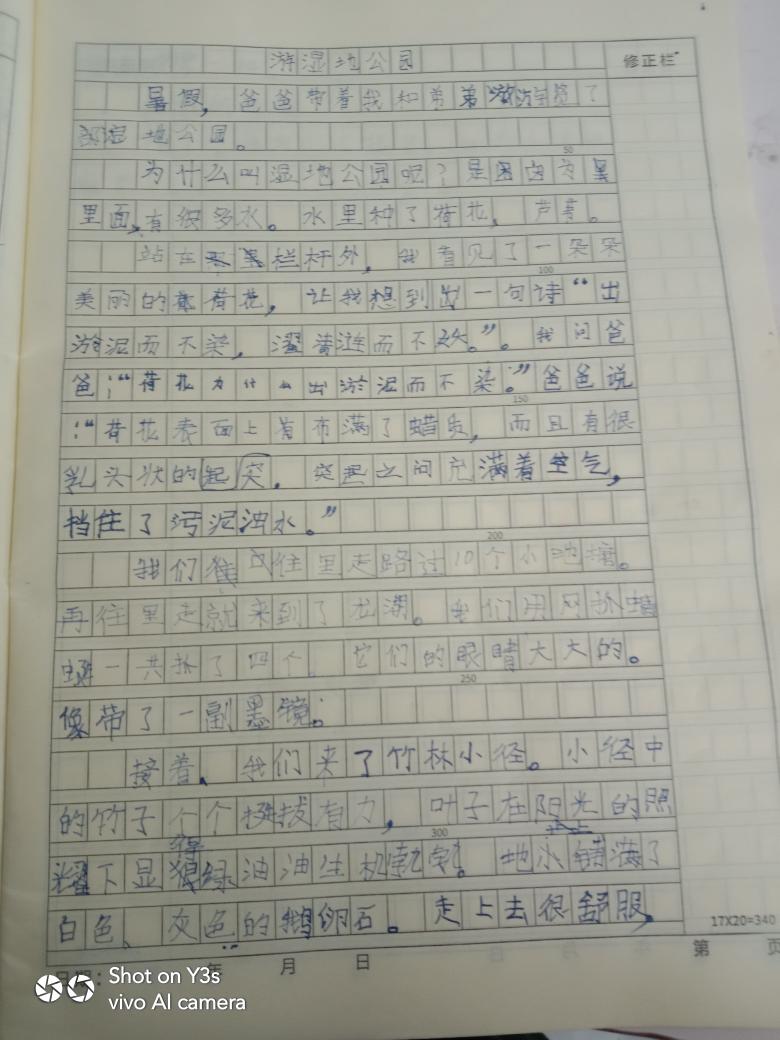 游湿地公园
修正栏
暑假，爸爸带着我和弟弟游览了
湿地公园。
50
为什么叫湿地公园呢？是因为
里面有很多水。水里种了荷花，芦苇。
站在栏杆外，我看见了一朵朵
100
美丽的荷花，让我想到出一句诗“出
淤泥而不染，濯清涟而不妖。”。我问爸
爸：“荷花为什么出淤泥而不染。”爸爸说
150
：“荷花表面上着布满了蜡质，而且有很
乳头状的起突，突起之间充满着空气，
挡住了污泥浊水。”
200
我们往里走路过10个小池塘。
再往里走就来到了龙湖。我们用网抓蜻
蜓一共抓了四个。它们的眼睛大大的。
250
像带了一副墨镜。
接着、我们来了竹林小径。小径中
的竹子个个挺拔有力，叶子在阳光的照
300
耀下显得绿油油生机勃勃。地小铺满了
白色、灰色的鹅卵石。走上去很舒服，
17X20=340
日期： 年 月 日 第 页
Shot on Y3s
vivo AI camera